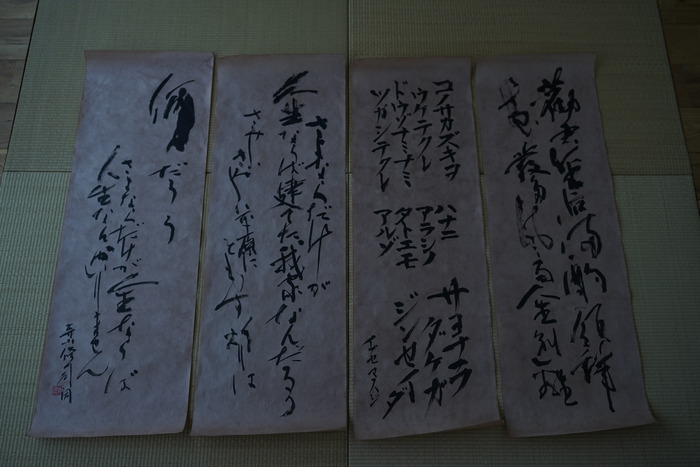 勧君金屈卮満酌不須辞
花發多風雨人生足別離
コノサカズキヲ
ウケテクレ
ドウゾナミナミ
ツガシテクレ
ハナニ
アラシノ
タトエモ
アルゾ
サヨナラ
ダケガ
ジンセイダ
さよならだけが
人生ならば建てた我が家なんだろう
さみしいさみしい平原に
ともす灯りは
何だろう
さよならだけが人生ならば
人生なんかいりません
寺山修司詞